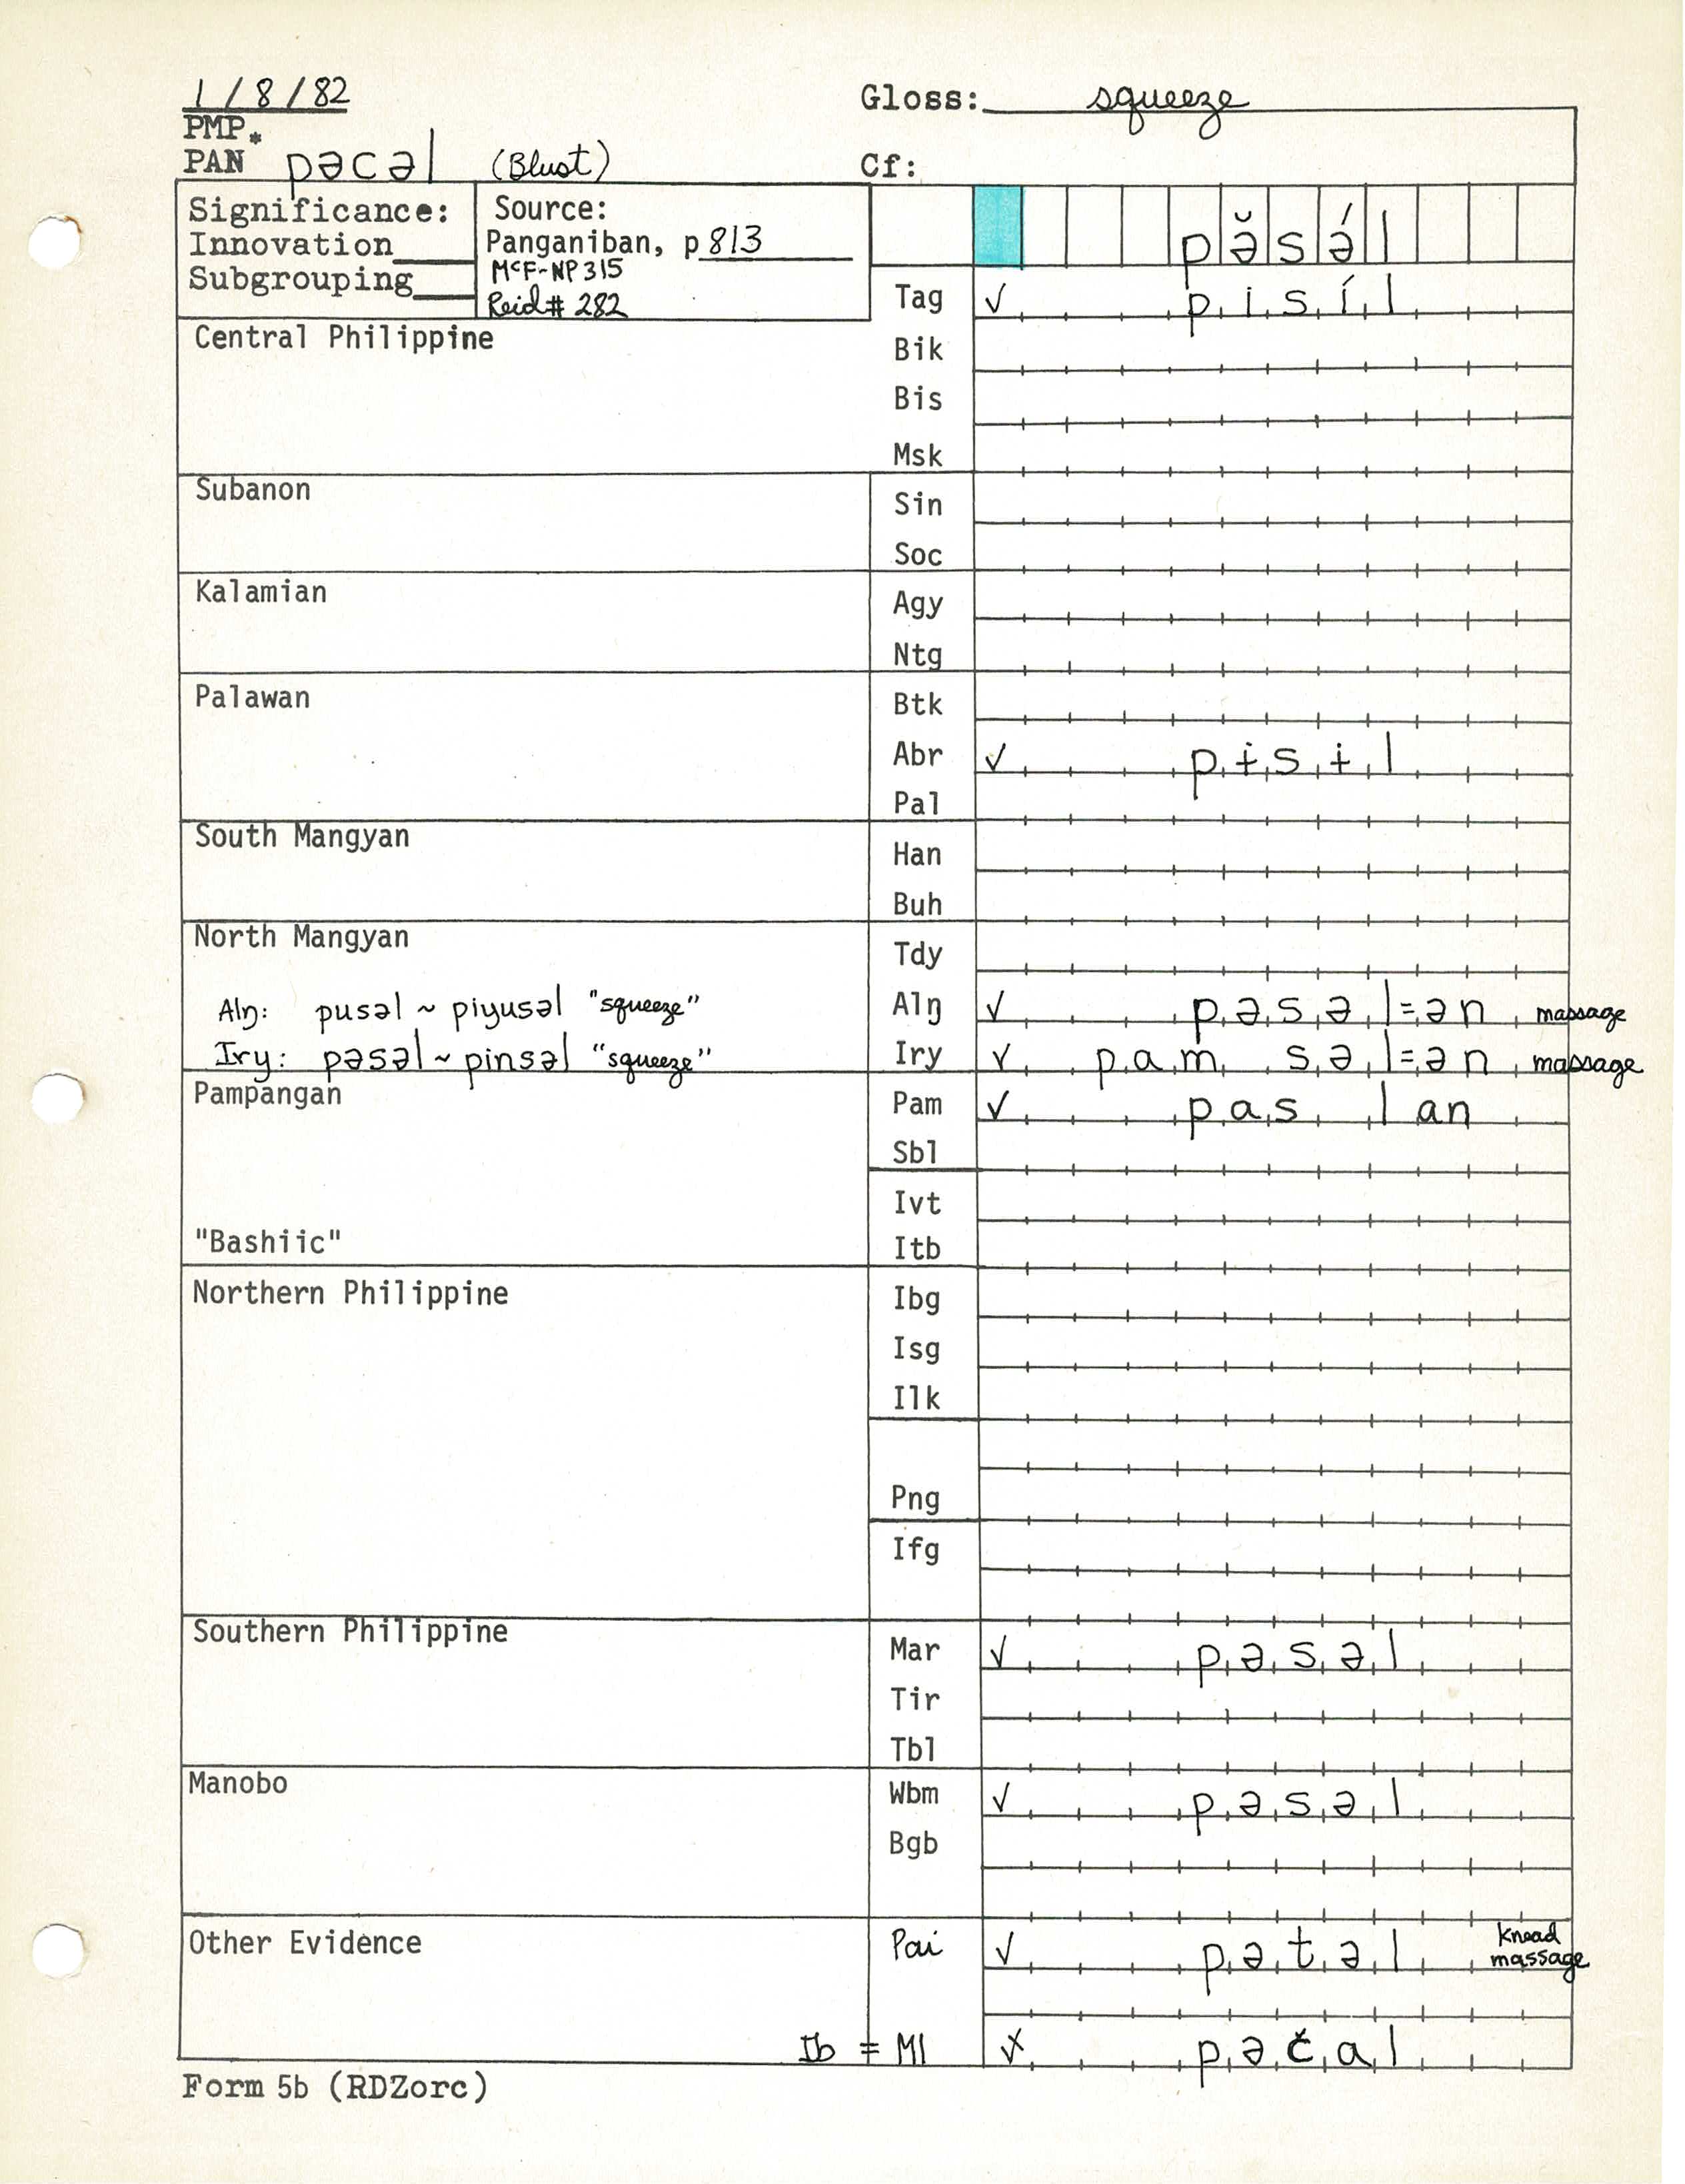 1/8/82
Gloss: squeeze
PMP *
PAN pəcəl (Blust)
Cf:
Significance:
Innovation
Subgrouping
Source:
Panganiban, p 813
McF-NP 315
Reid# 282
pə̆sə́l
Tag √ pisíl
Central Philippine
Bik
Bis
Msk
Subanon
Sin
Soc
Kalamian
Agy
Ntg
Palawan
Btk
Abr √ pɨsɨl
Pal
South Mangyan
Han
Buh
North Mangyan
Tdy
Alŋ: pusəl ~ piyusəl "squeeze"
Alŋ √ pəsəl=ən massage
Iry: pəsəl ~ pinsəl "squeeze"
Iry √ pam səl=ən massage
Pampangan
Pam √ pas lan
Sbl
Ivt
"Bashiic"
Itb
Northern Philippine
Ibg
Isg
Ilk
Png
Ifg
Southern Philippine
Mar √ pəsəl
Tir
Tbl
Manobo
Wbm √ pəsəl
Bgb
Other Evidence
Pai √ pətəl knead massage
Ib ≠ Ml x pəčal
Form 5b (RDZorc)